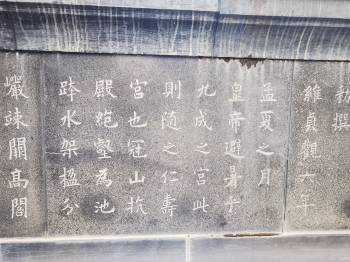 勑撰
維貞觀六年
孟夏之月
皇帝避暑乎
九成之宮此
則隨之仁壽
宮也冠山抗
殿絕壑為池
跨水架楹分
巖竦闕高閣